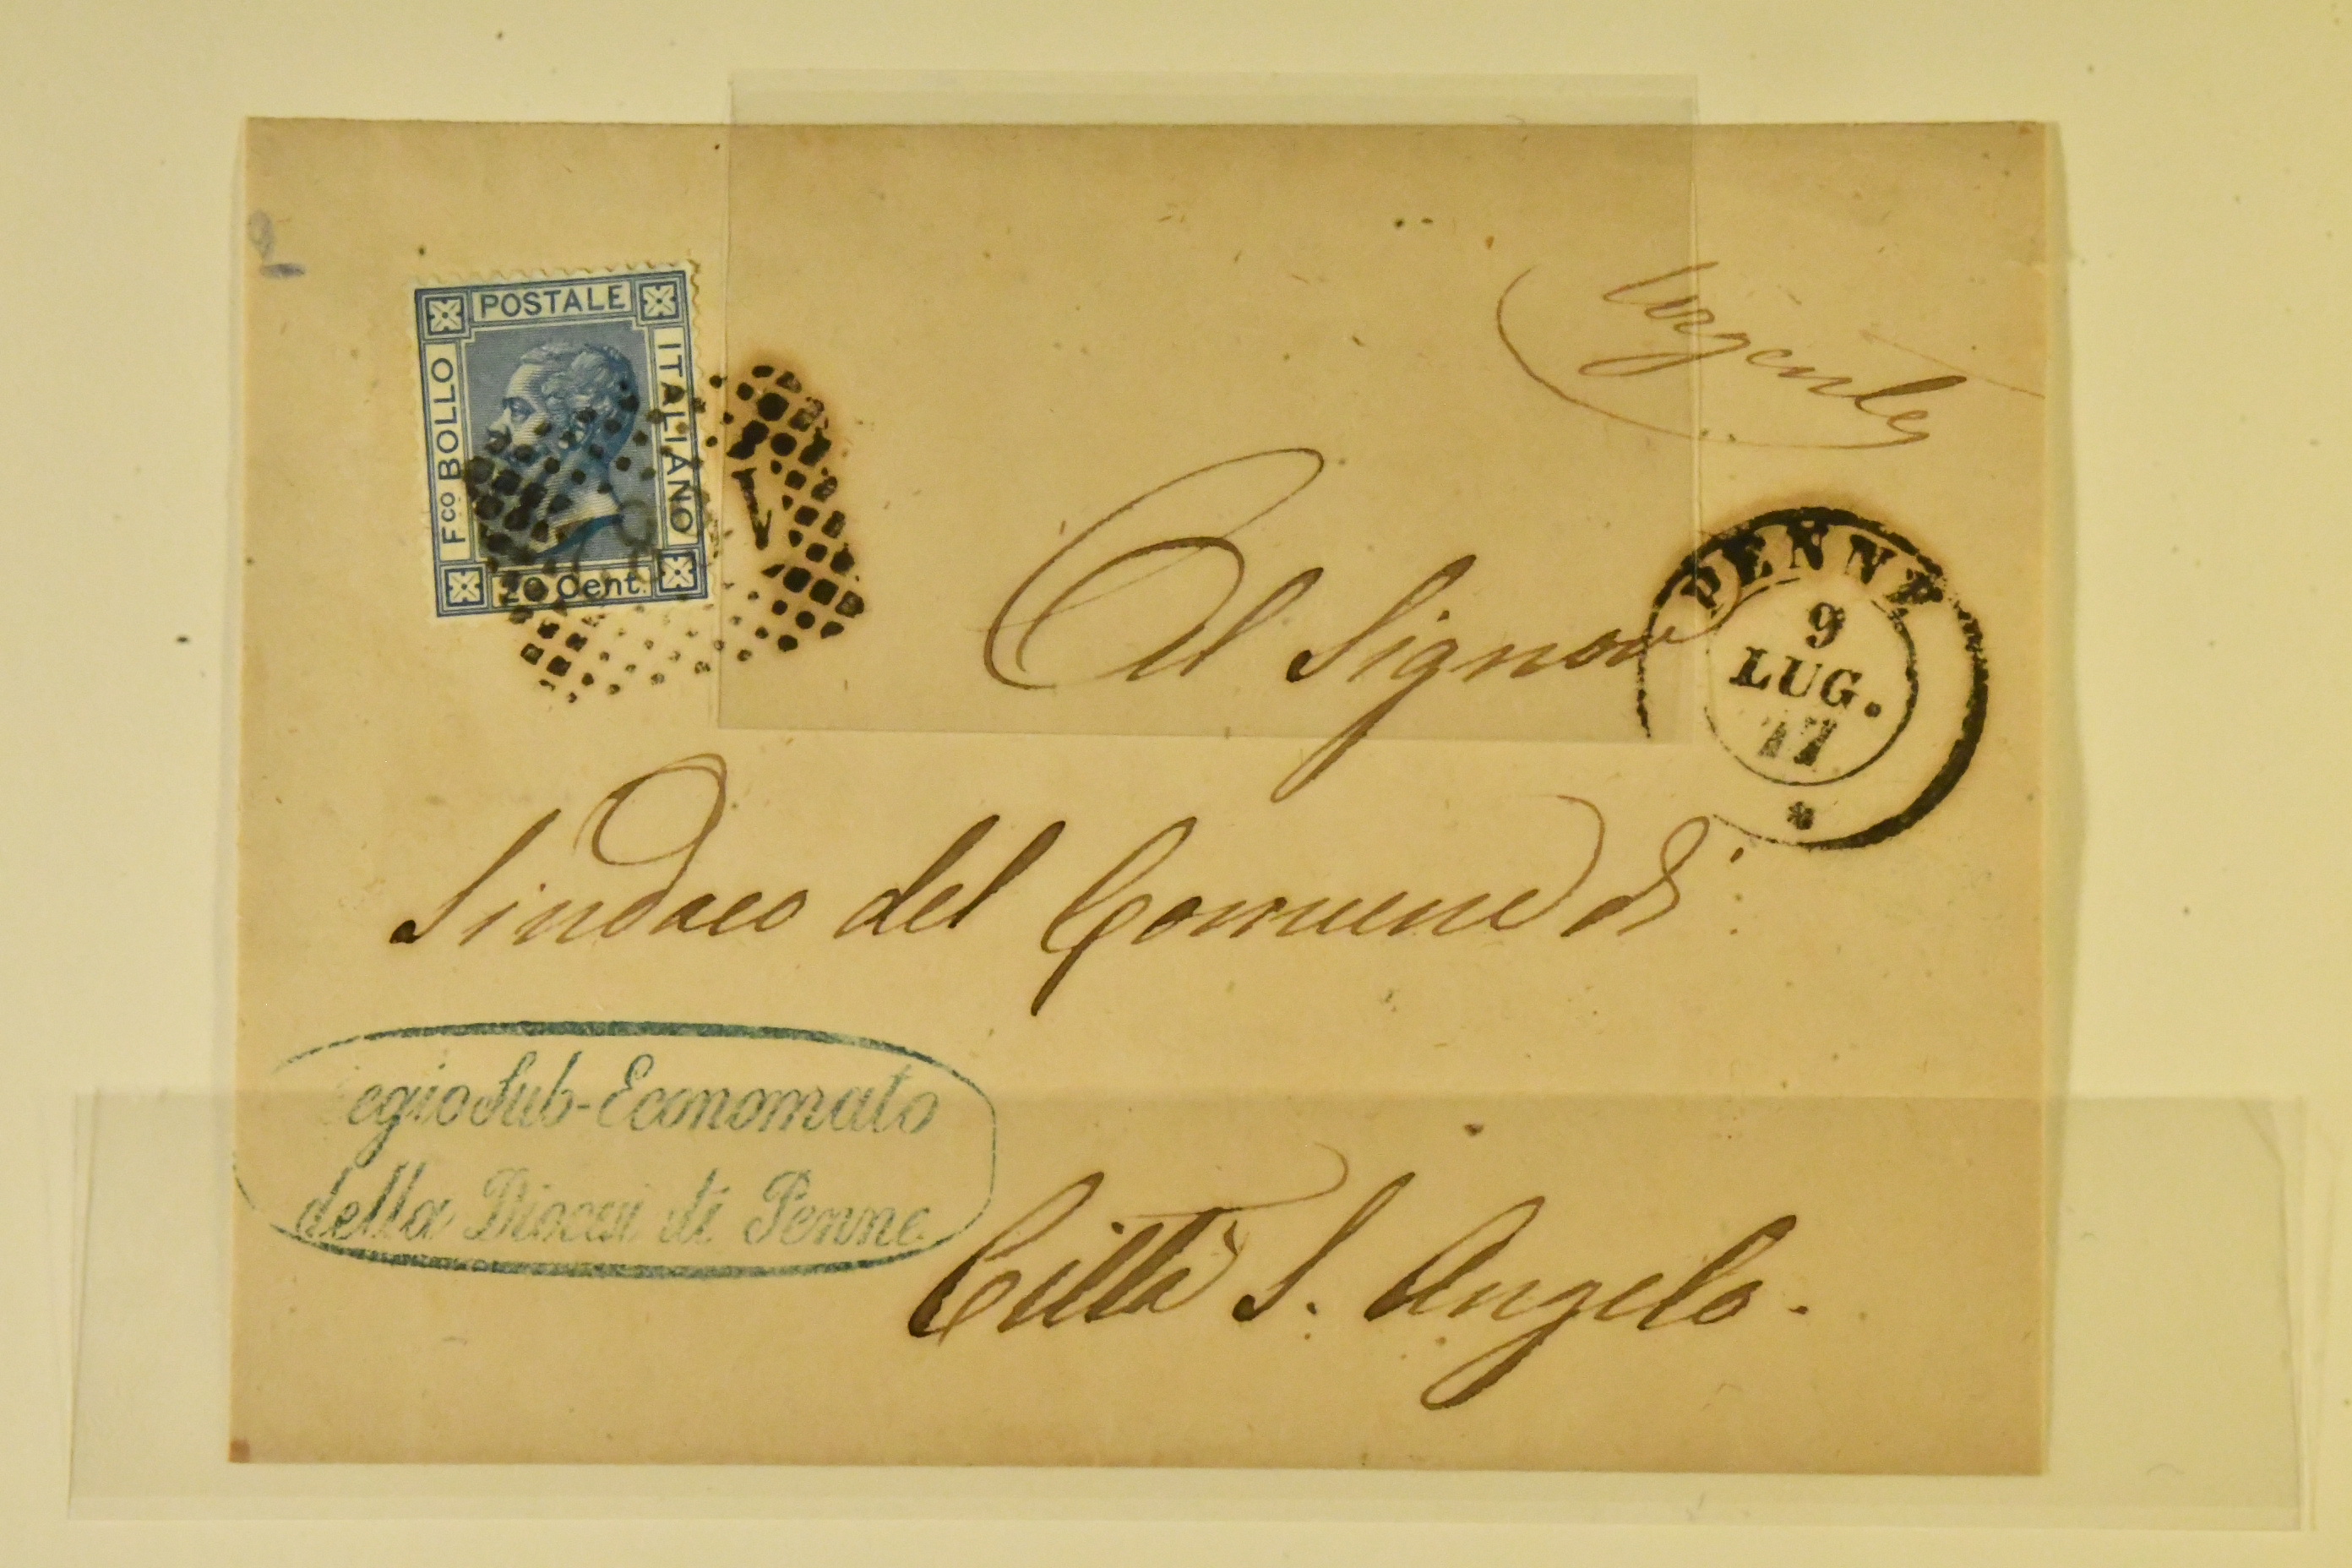 POSTALE
Fco BOLLO
ITALIANO
20 Cent.
Urgente
PENNE
9
LUG.
77
*
Al Signor
Sindaco del Comune di
egio Sub-Economato
della Diocesi di Penne
Città S. Angelo.